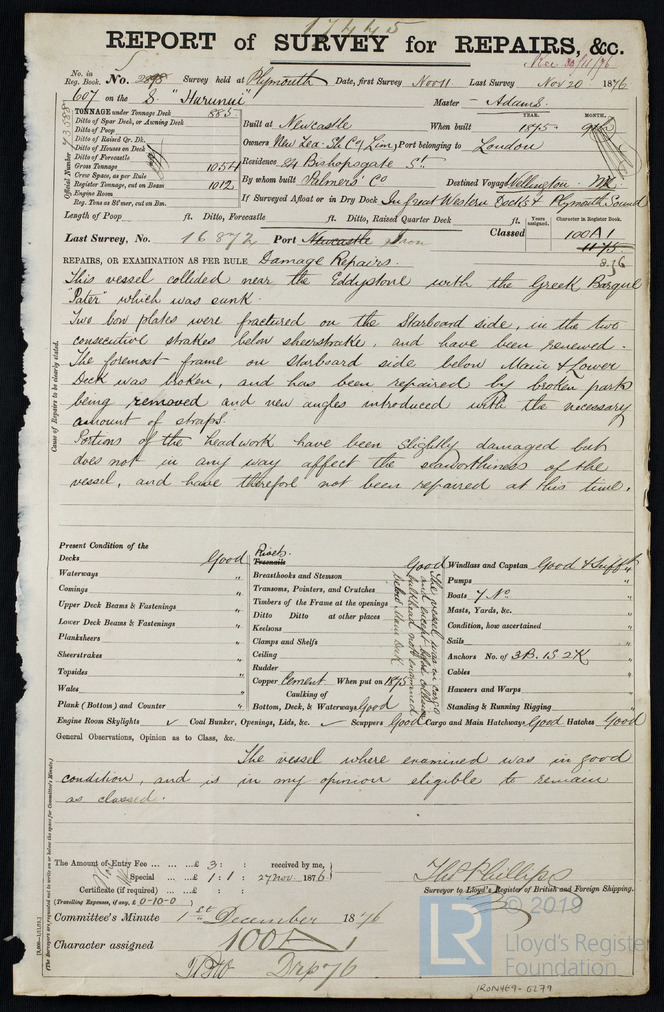 17445
REPORT of SURVEY for REPAIRS, &c.
No. in Reg. Book. No. 2898 Survey held at Plymouth Date, first Survey Nov 11 Last Survey Nov 20 1876
607 on the S. "Hurunui" Master Adams.
TONNAGE under Tonnage Deck 885
Ditto of Spar Deck, or Awning Deck
Ditto of Poop
Ditto of Raised Qr. Dk.
Ditto of Houses on Deck
Ditto of Forecastle
Gross Tonnage 1054
Crew Space, as per Rule
Register Tonnage, cut on Beam 1012
Engine Room
Reg. Tons as St'mer, cut on Bm.
Official Number
Built at Newcastle When built YEAR. 1875 MONTH.
Owners New Zea. Sh. Cy Lim, Port belonging to London
Residence 24 Bishopsgate St.
By whom built Palmers' Co Destined Voyage Wellington
If Surveyed Afloat or in Dry Dock In Great Western Docks & Plymouth Sound
Length of Poop ft. Ditto, Forecastle ft. Ditto, Raised Quarter Deck ft. Years assigned. Character in Register Book.
Classed 100A1
11.75
8.76
Last Survey, No. 16872 Port Newcastle Iron
REPAIRS, OR EXAMINATION AS PER RULE Damage Repairs.
Cause of Repairs to be clearly stated.
This vessel collided near the Eddystone with the Greek Barque
"Pater" which was sunk.
Two bow plates were fractured on the Starboard side, in the two
consecutive strakes below sheerstrake, and have been renewed.
The foremost frame on Starboard side below Main & Lower
Deck was broken, and has been repaired by broken parts
being removed and new angles introduced with the necessary
amount of straps.
Portions of the headwork have been slightly damaged but
does not in any way affect the seaworthiness of the
vessel, and have therefore not been repaired at this time.
Present Condition of the
Decks Good
Waterways "
Comings "
Upper Deck Beams & Fastenings "
Lower Deck Beams & Fastenings "
Planksheers "
Sheerstrakes "
Topsides "
Wales "
Plank (Bottom) and Counter "
Rivets.
Treenails Good
Breasthooks and Stemson
Transoms, Pointers, and Crutches
Timbers of the Frame at the openings
Ditto Ditto at other places
Keelsons
Clamps and Shelfs
Ceiling
Rudder
Copper Cement When put on 1875
Caulking of
Bottom, Deck, & Waterways Good
The vessel was in cargo
and except before collision
bulkhead not examined
below Main Deck
Windlass and Capstan Good & Sufft.
Pumps "
Boats 7 No "
Masts, Yards, &c. "
Condition, how ascertained "
Sails "
Anchors No. of 3B. 1S 2K
Cables "
Hawsers and Warps "
Standing & Running Rigging "
Engine Room Skylights ✓ Coal Bunker, Openings, Lids, &c. ✓ Scuppers Good Cargo and Main Hatchways Good Hatches Good
General Observations, Opinion as to Class, &c.
The vessel where examined was in good
condition, and is in my opinion eligible to remain
as classed.
The Amount of Entry Fee ... ... ... £ 3 : : received by me,
Special ... ... £ 1 : 1 : 27 Nov. 1876
Certificate (if required) ... ... £ : :
(Travelling Expenses, if any, £ 0-10-0 )
Thos Phillips
Surveyor to Lloyd's Register of British and Foreign Shipping.
Committee's Minute 1st December 1876
Character assigned 100A1
Drp 76
(The Surveyors are requested not to write on or below the space for Committee's Minute.)
© 2019
LR Lloyd's Register
Foundation
IRON469-0279